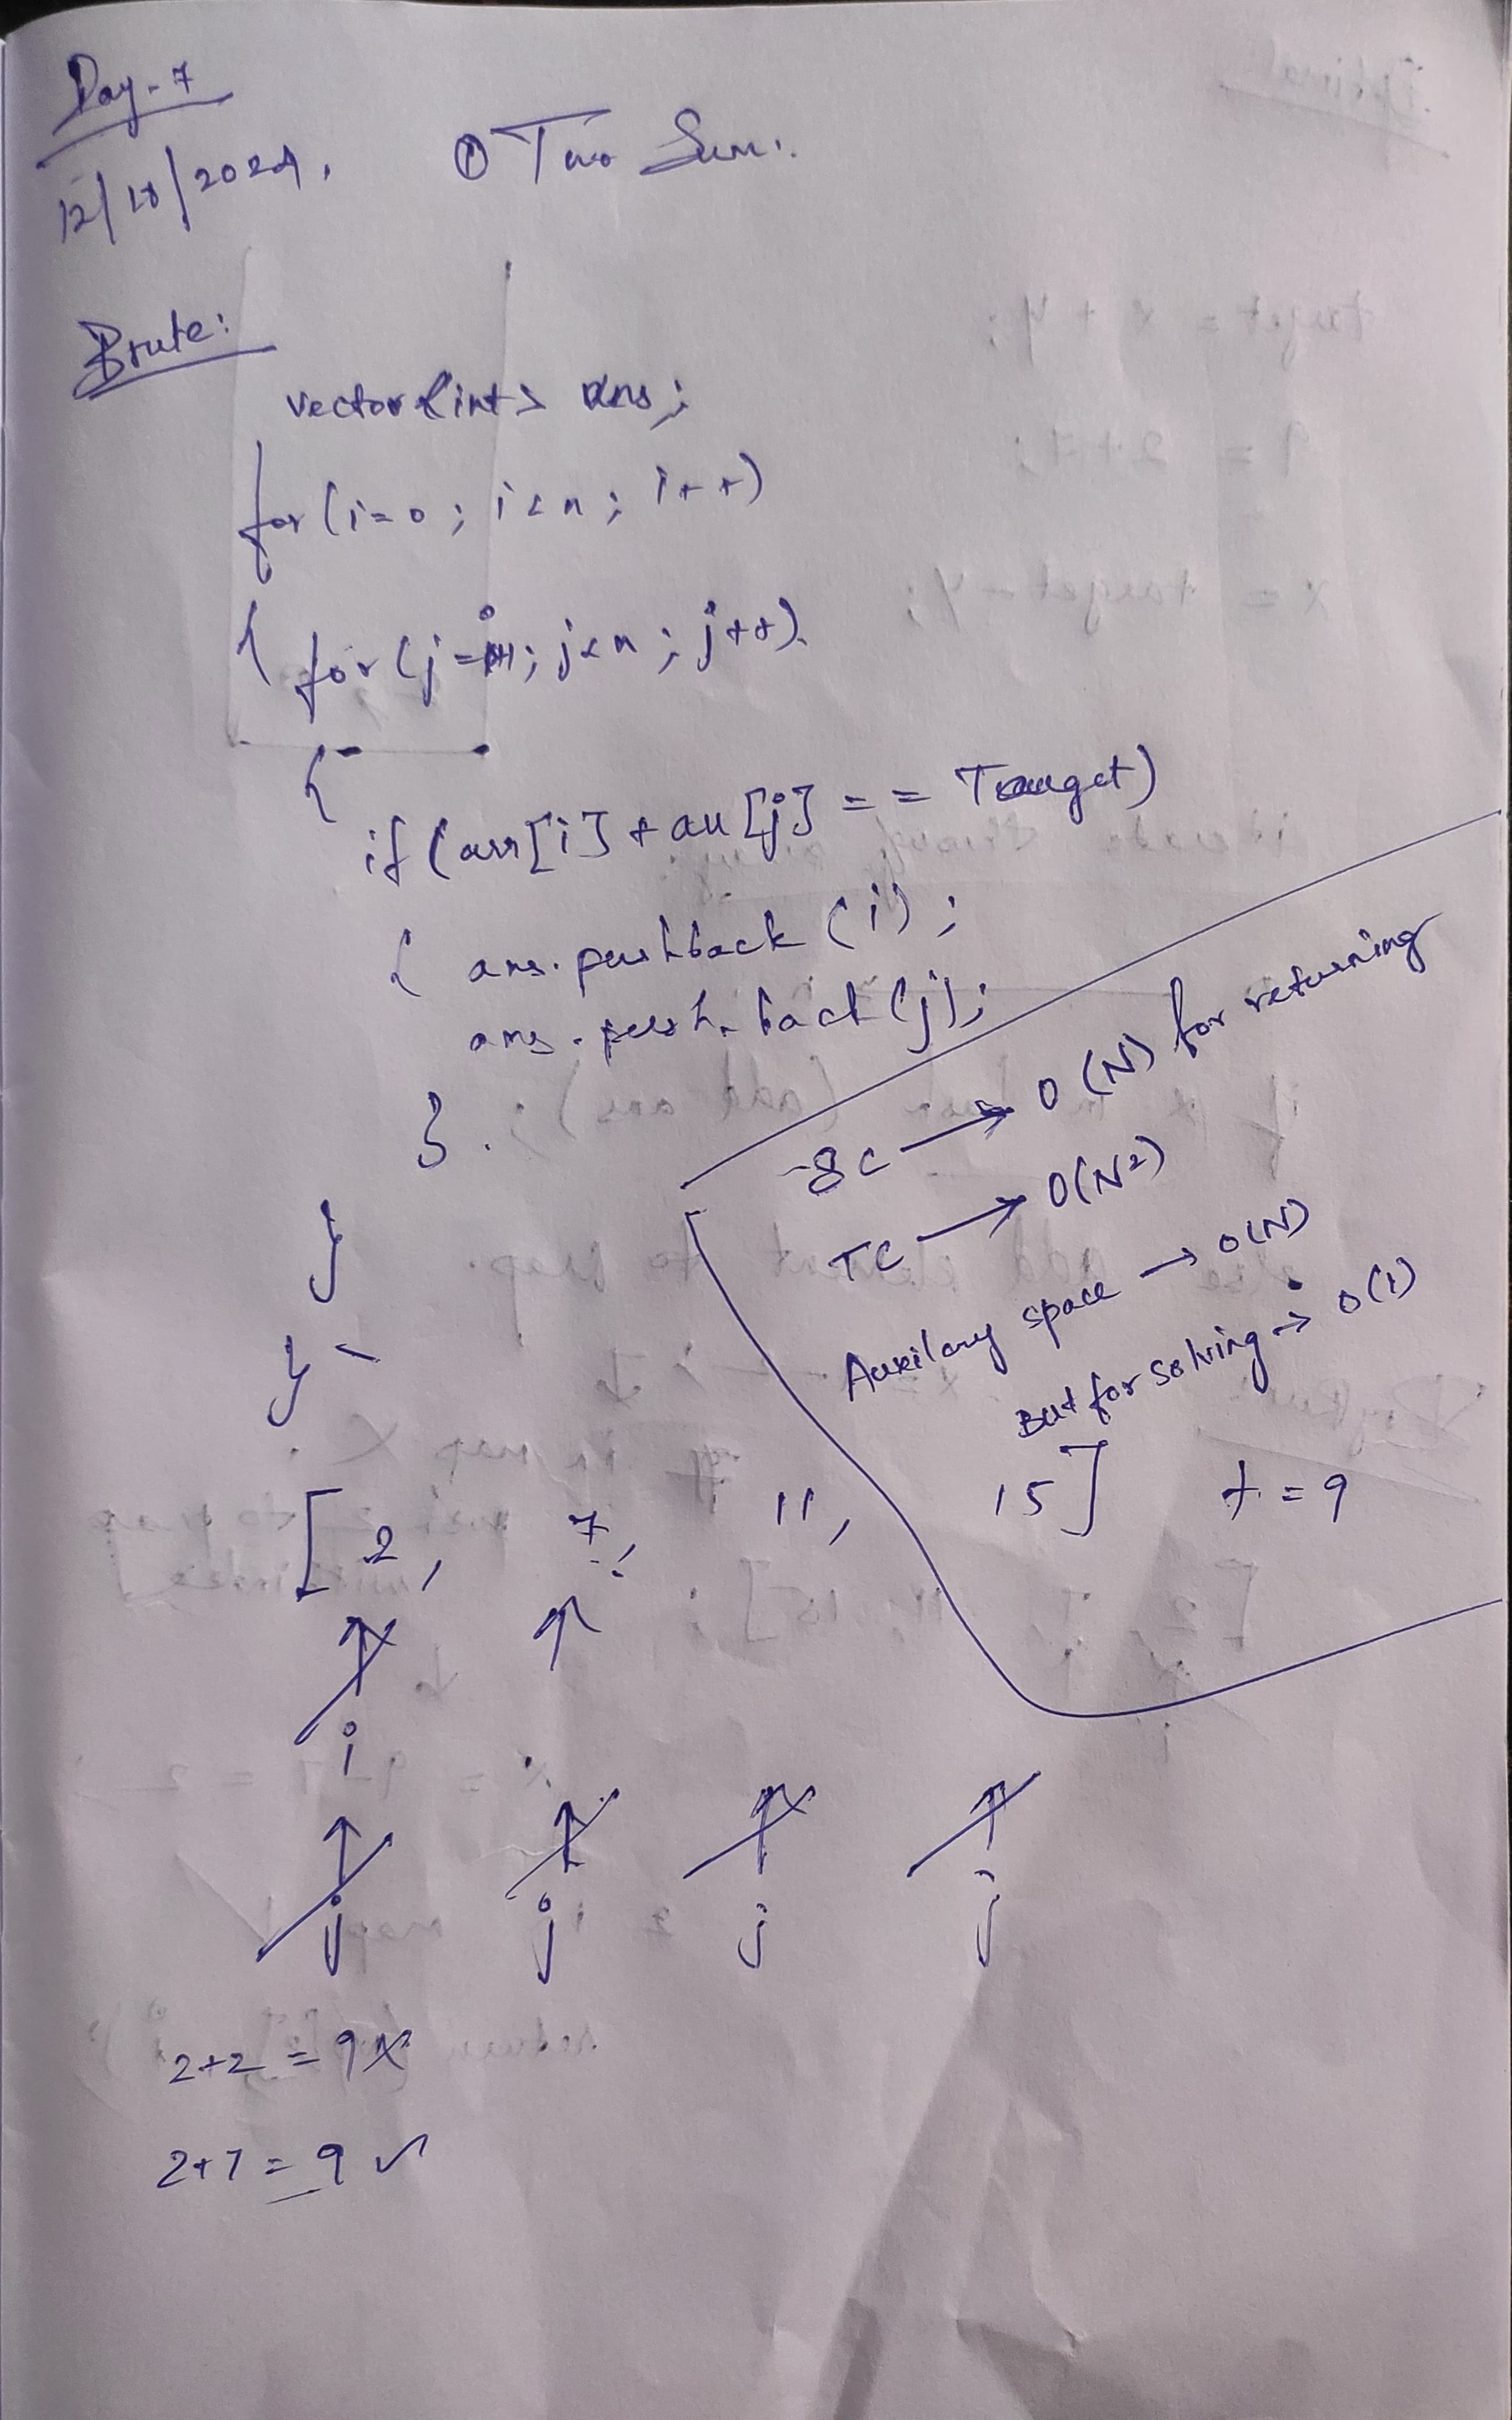 Day-7
12/10/2024, ① Two Sum.
Brute:
vector<int> ans;
for(i=0; i<n; i++)
{ for(j=i+1; j<n; j++).
{
if(arr[i]+arr[j] == Target)
{ ans.pushback(i);
ans.push_back(j);
}.
}
}
SC → O(N) for returning
TC → O(N²)
Auxilary space → O(N)
But for solving → O(1)
[2, 7, 11, 15] t=9
↑ ↑
i
↑ ↑ ↑ ↑
j j j j
2+2 = 9 X
2+7 = 9 ✓